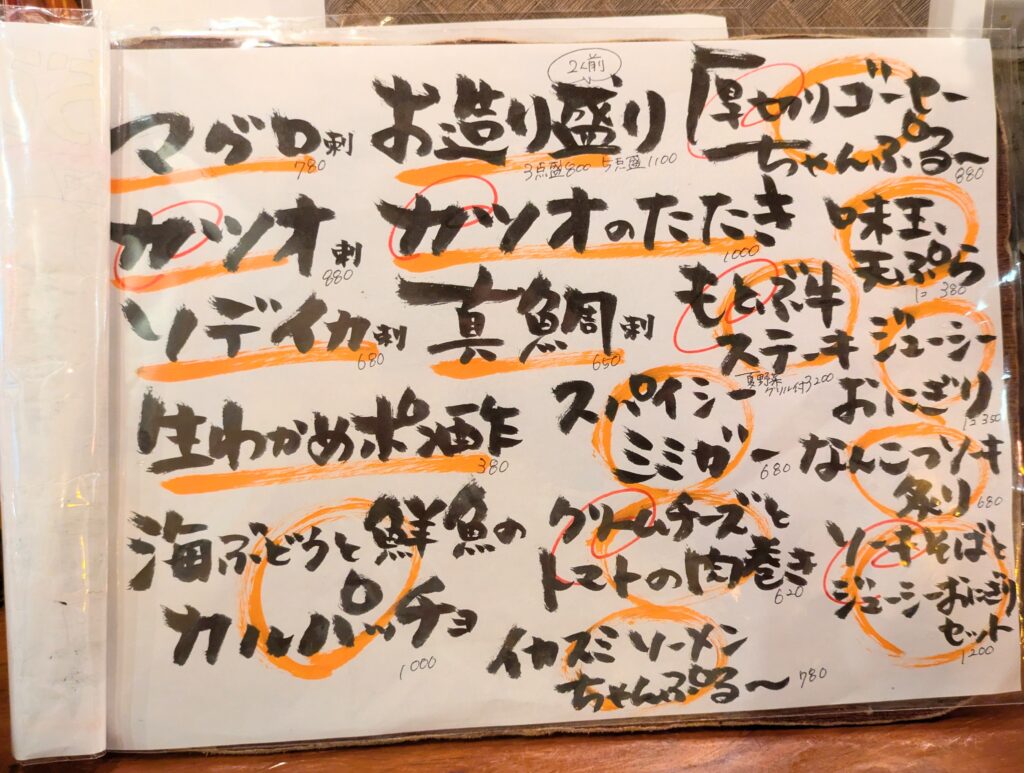 マグロ刺
780
2人前
お造り盛り
3点盛800 5点盛1100
厚切りゴーヤー
ちゃんぷる〜
880
カツオ刺
880
カツオのたたき
1000
味玉、
天ぷら
1コ 380
ソデイカ刺
680
真鯛刺
650
もとぶ牛
ステーキ
夏野菜
グリル付3200
ジューシー
おにぎり
1コ350
生わかめポン酢
380
スパイシー
ミミガー
680
なんこつソーキ
炙り
680
海ぶどうと鮮魚の
カルパッチョ
1000
クリームチーズと
トマトの肉巻き
620
ソーキそばと
ジューシーおにぎり
セット
1200
イカスミソーメン
ちゃんぷる〜
780